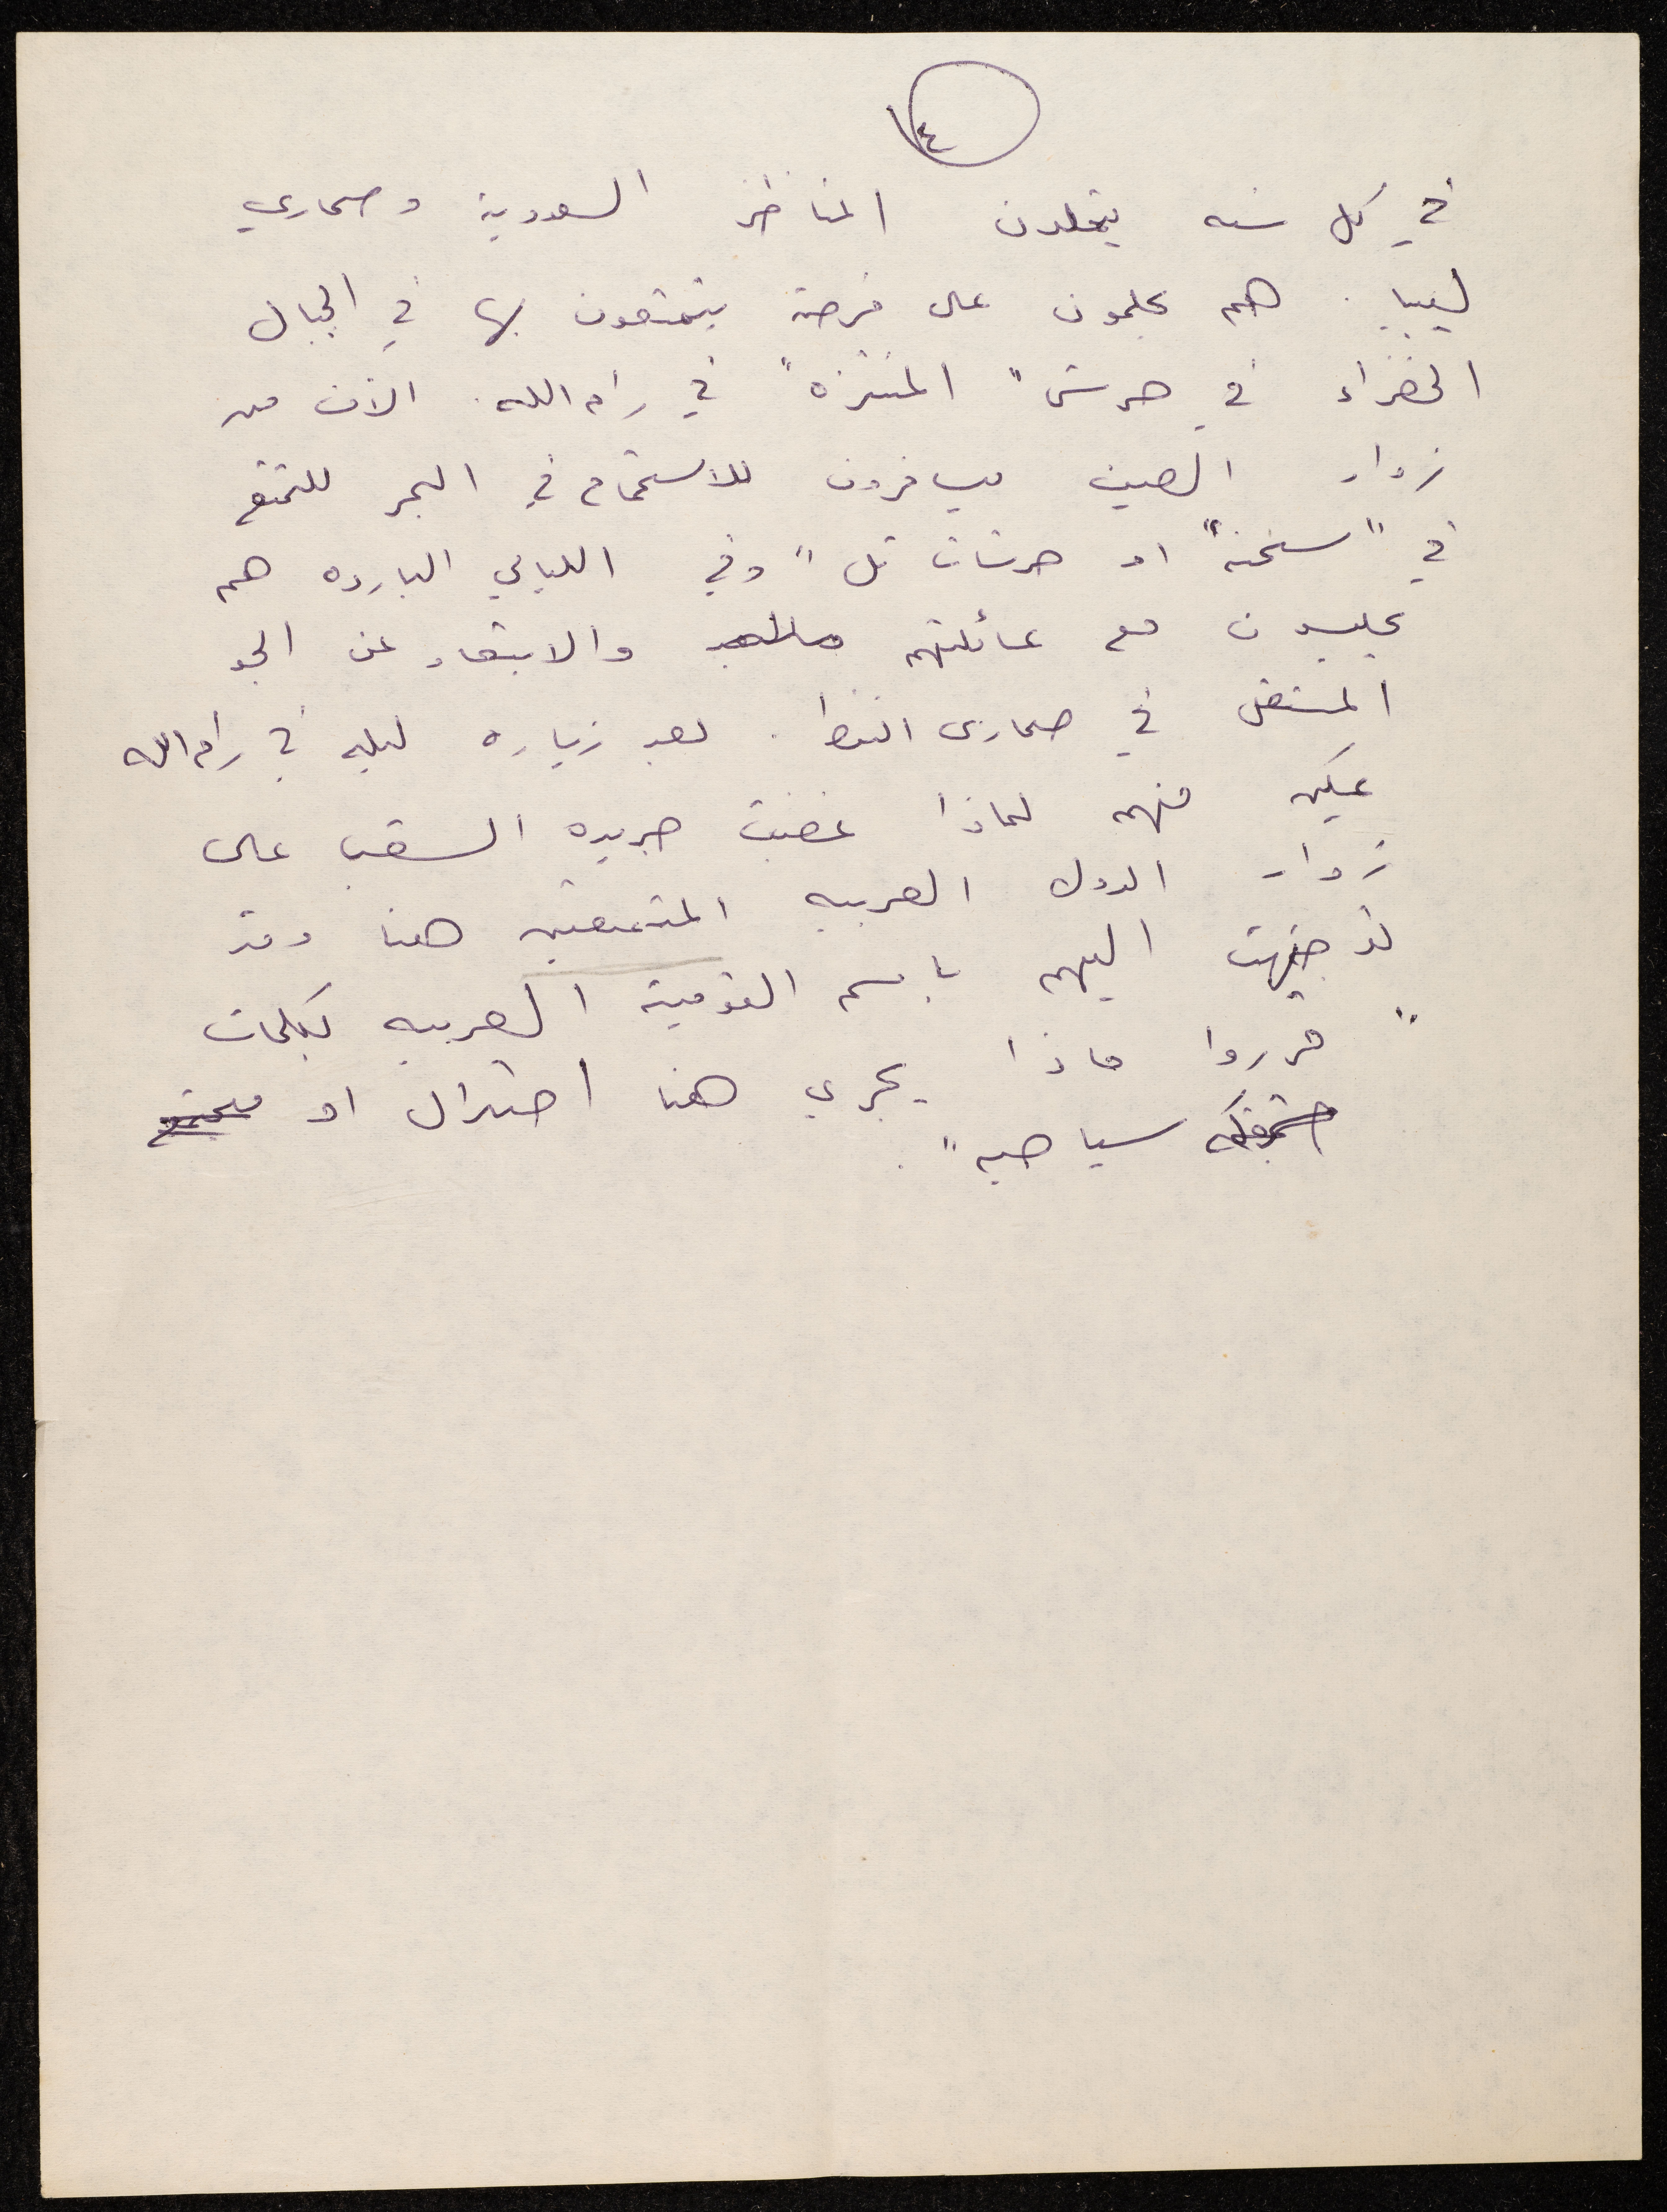 ١٤
في كل سنه يتحملون المناظر السعودية وصحاري
ليبيا. هم يحلمون على فرصة يتمتعون بها في الجبال
الخضراء في حرش "المنتزه" في رام الله. الاف من
زوار الصيف يسافرون للاستحمام في البحر للتمتع
في "سخنه" او حرشات تل" وفي الليالي البارده هم
يجلسون مع عائلتهم والابتعاد عن الجو
في صحارى النفط. بعد زياره ليليه في رام الله
يمكن فهم لماذا غضبت جريده الشعب على
زوار الدول العربيه المتمتعين هنا وقد
توجهت اليهم باسم القومية العربيه بكلمات
"قرروا ماذا يجري هنا احتلال او
سياحيه".